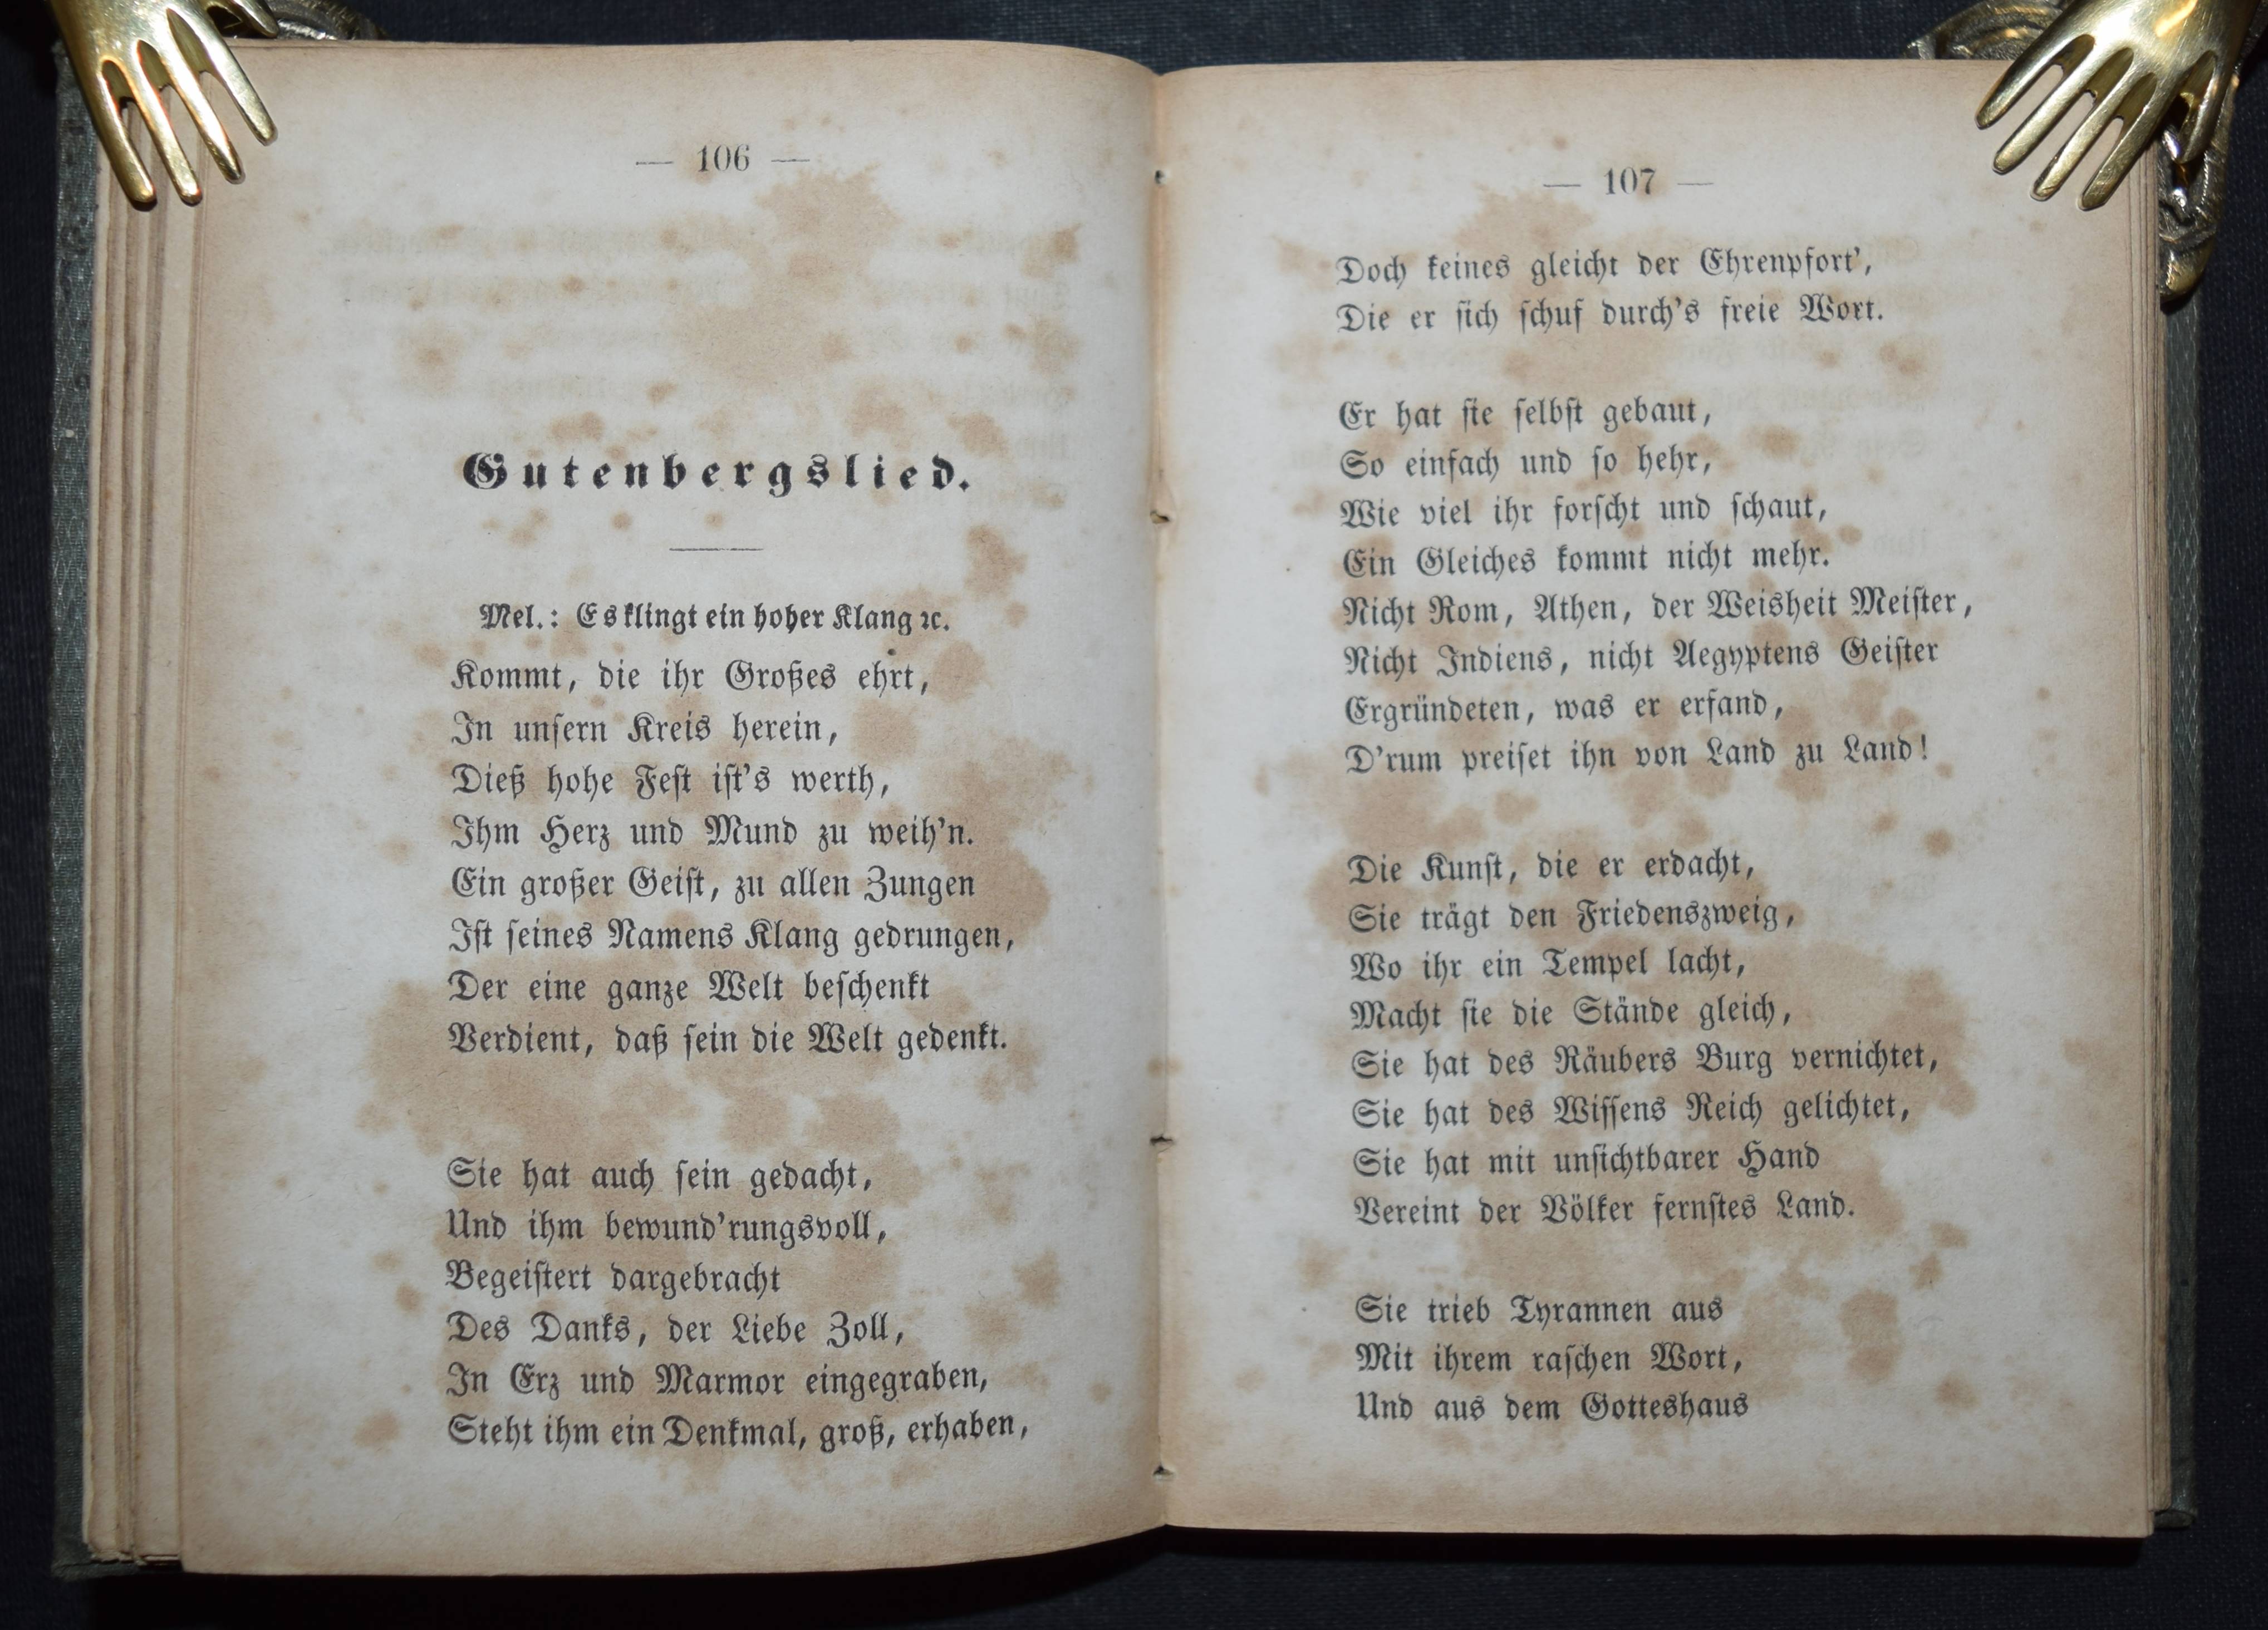 — 106 —
Gutenbergslied.
Mel.: Es klingt ein hoher Klang ꝛc.
Kommt, die ihr Großes ehrt,
In unſern Kreis herein,
Dieß hohe Feſt iſt's werth,
Ihm Herz und Mund zu weih'n.
Ein großer Geiſt, zu allen Zungen
Iſt ſeines Namens Klang gedrungen,
Der eine ganze Welt beſchenkt
Verdient, daß ſein die Welt gedenkt.
Sie hat auch ſein gedacht,
Und ihm bewund'rungsvoll,
Begeiſtert dargebracht
Des Danks, der Liebe Zoll,
In Erz und Marmor eingegraben,
Steht ihm ein Denkmal, groß, erhaben,
— 107 —
Doch keines gleicht der Ehrenpfort',
Die er ſich ſchuf durch's freie Wort.
Er hat ſie ſelbſt gebaut,
So einfach und ſo hehr,
Wie viel ihr forſcht und ſchaut,
Ein Gleiches kommt nicht mehr.
Nicht Rom, Athen, der Weisheit Meiſter,
Nicht Indiens, nicht Aegyptens Geiſter
Ergründeten, was er erfand,
D'rum preiſet ihn von Land zu Land!
Die Kunſt, die er erdacht,
Sie trägt den Friedenszweig,
Wo ihr ein Tempel lacht,
Macht ſie die Stände gleich,
Sie hat des Räubers Burg vernichtet,
Sie hat des Wiſſens Reich gelichtet,
Sie hat mit unſichtbarer Hand
Vereint der Völker fernſtes Land.
Sie trieb Tyrannen aus
Mit ihrem raſchen Wort,
Und aus dem Gotteshaus